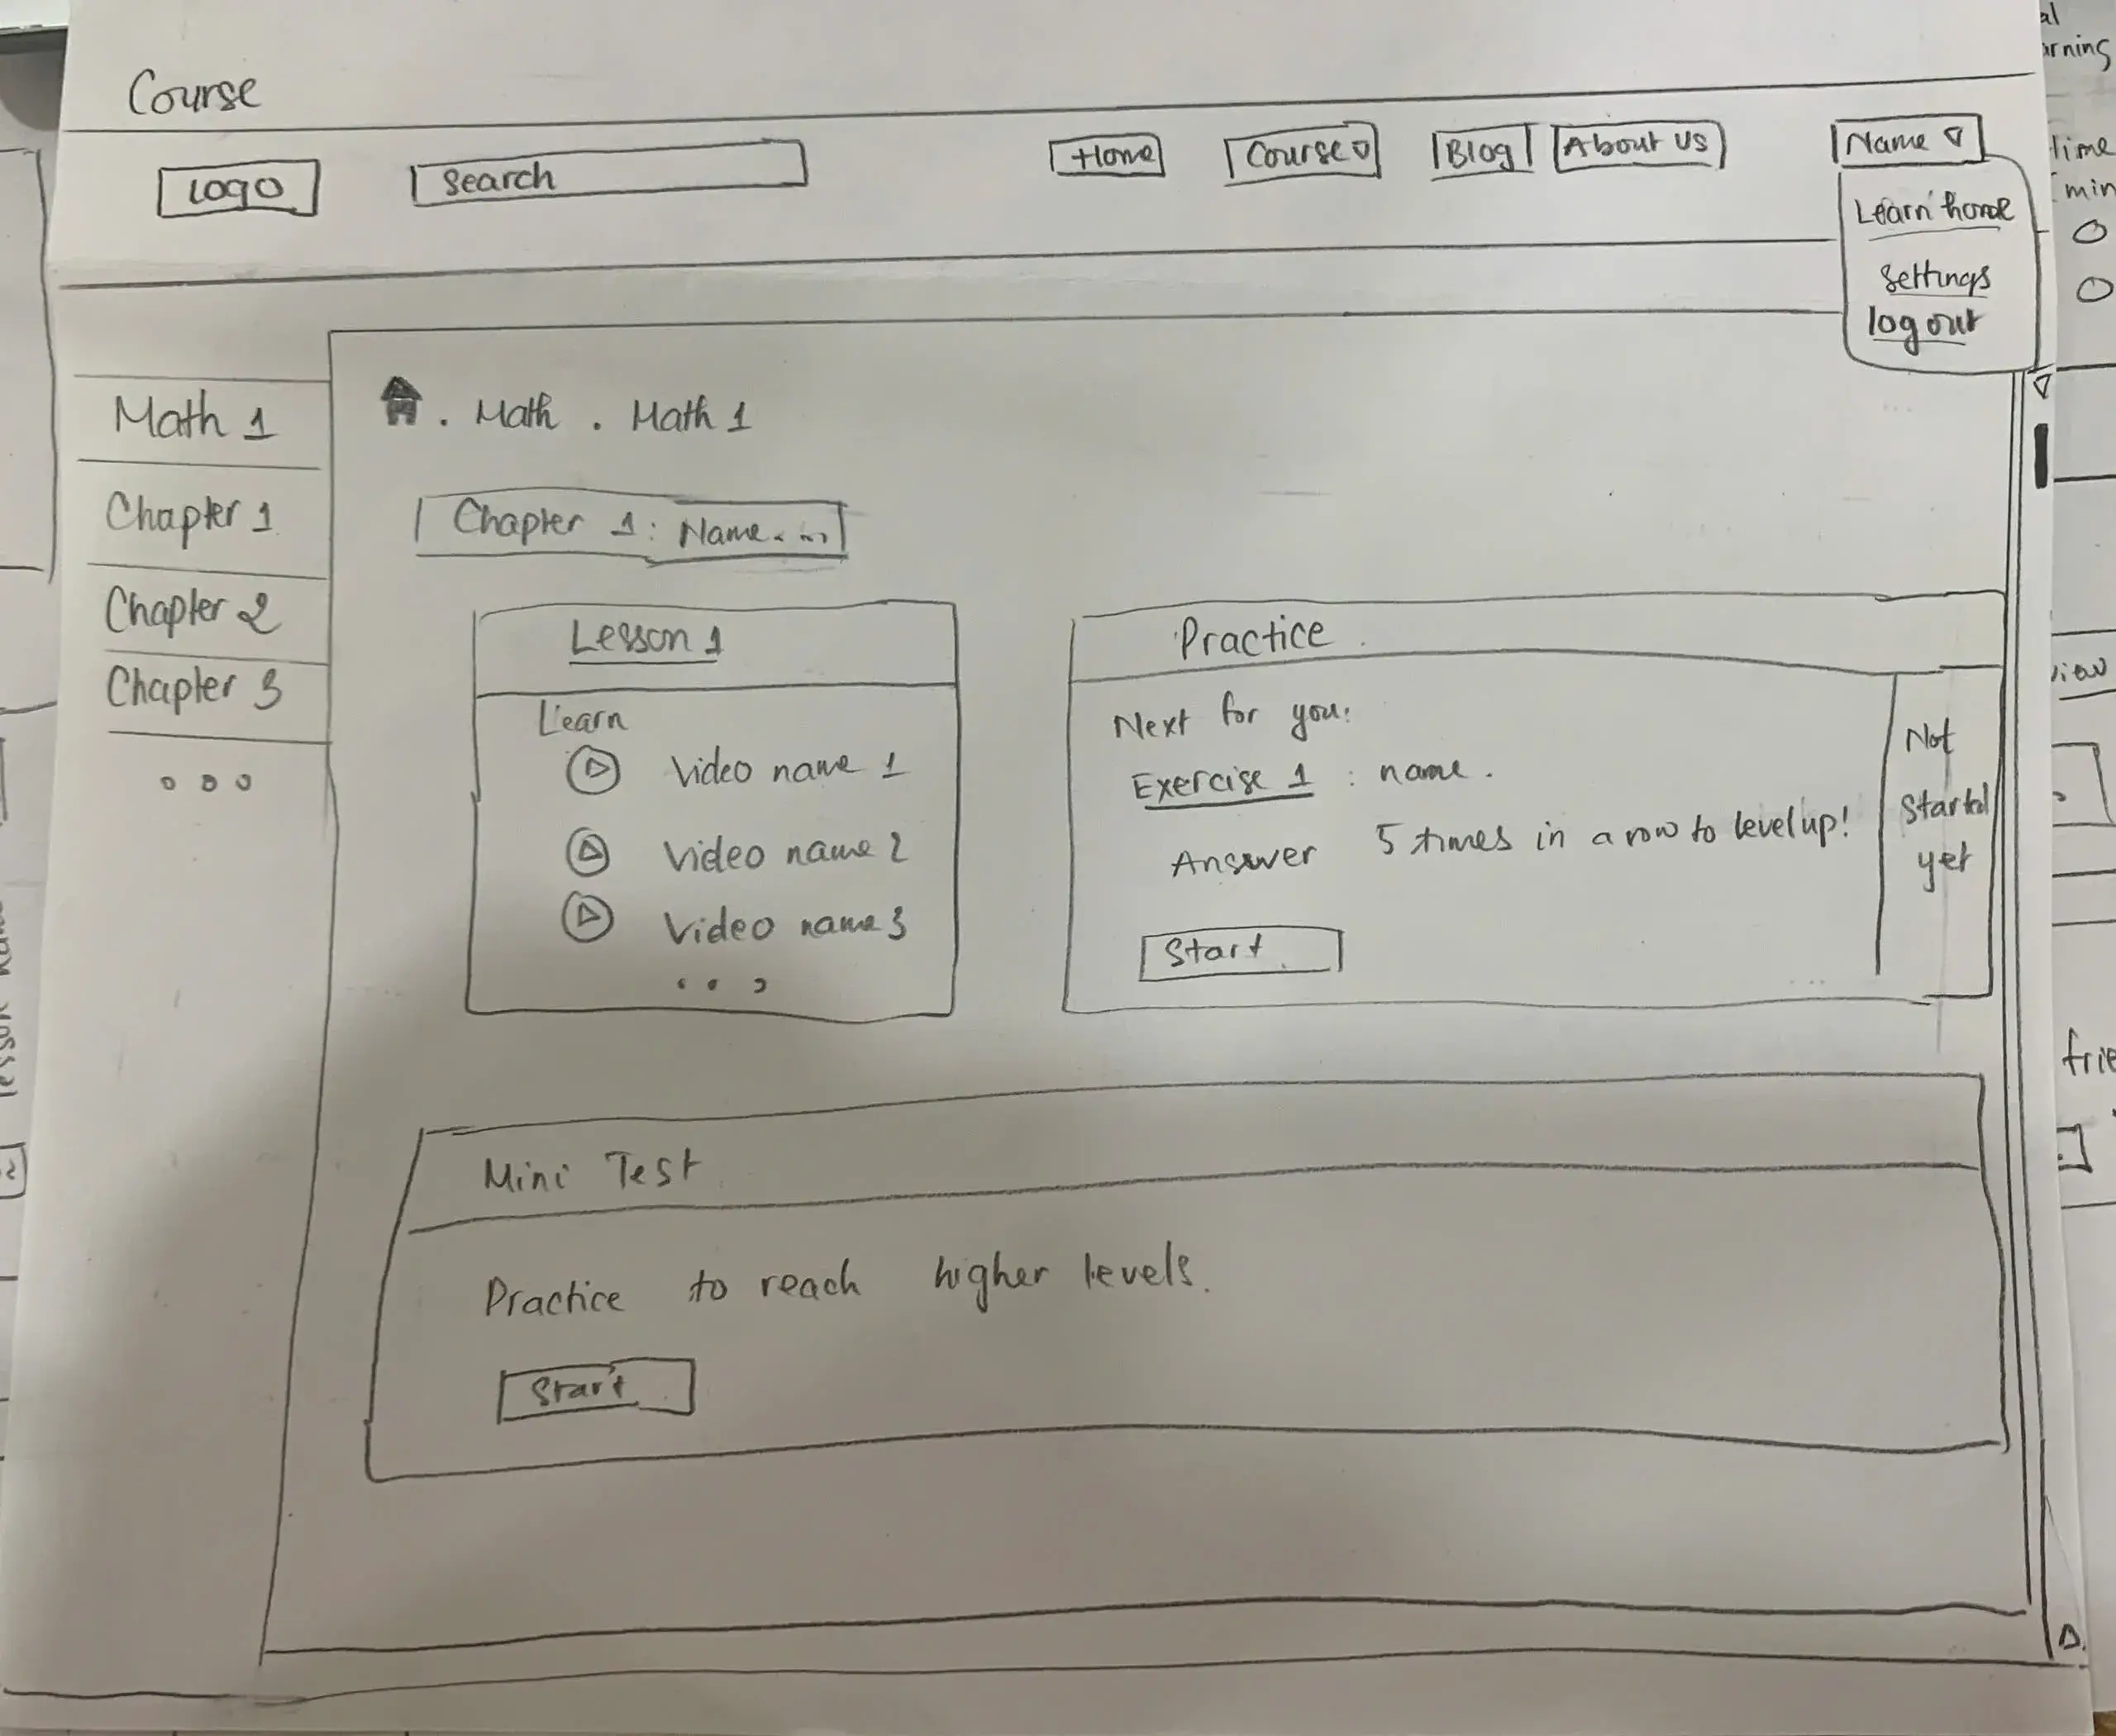 Course
Logo
Search
Home
Course
Blog
About Us
Name
Learn home
Settings
log out
Math 1
Chapter 1
Chapter 2
Chapter 3
. Math . Math 1
Chapter 1: Name...
Lesson 1
Learn
Video name 1
Video name 2
Video name 3
...
Practice
Next for you:
Exercise 1 : name.
Answer 5 times in a row to level up!
Start
Not
Started
yet
Mini Test
Practice to reach higher levels.
Start
min